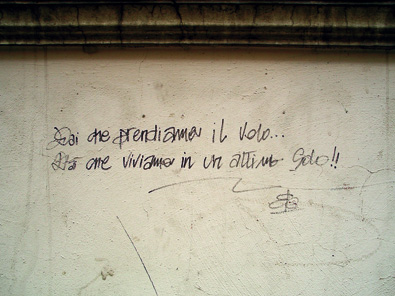 Dai che prendiamo il volo...
Dai che viviamo in un attimo Solo!!